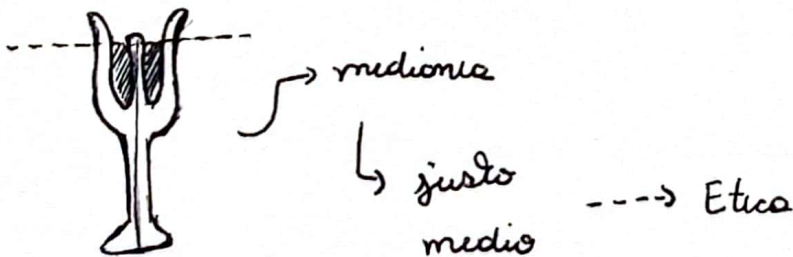 medionia
justo
medio
Etica